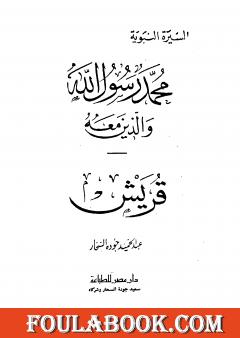 السيرة النبوية
محمد رسول الله
والذين معه
قريش
عبد الحميد جوده السحار
دار مصر للطباعة
سعيد جودة السحار وشركاه
FOULABOOK.COM